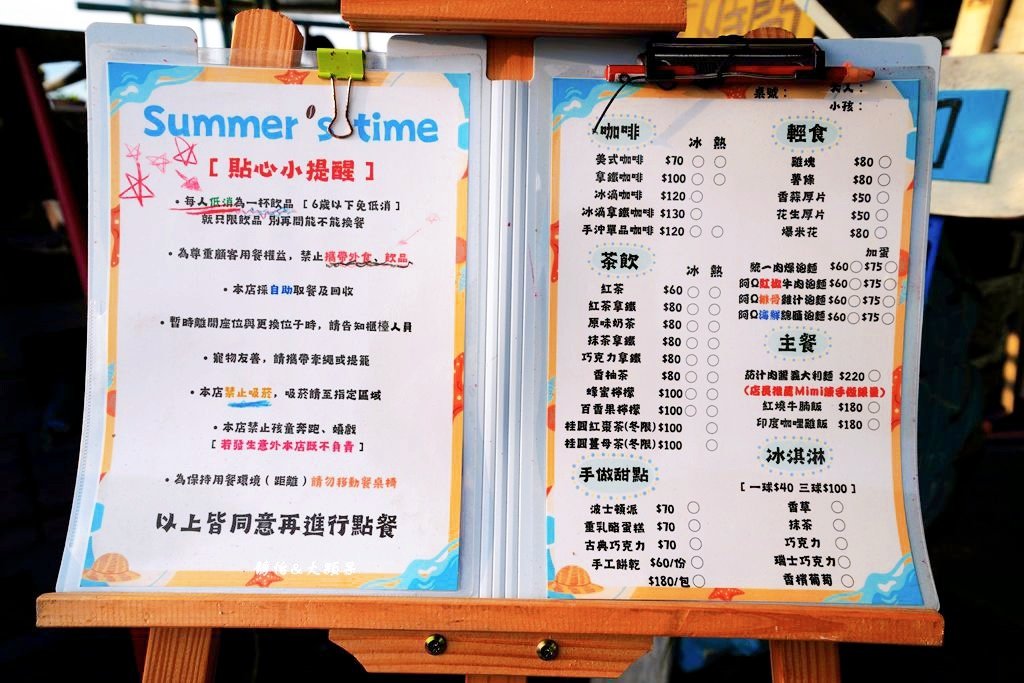 Summer's time
[ 貼心小提醒 ]
• 每人低消為一杯飲品 [ 6歲以下免低消 ]
就只限飲品 別再問能不能換餐
• 為尊重顧客用餐權益，禁止攜帶外食、飲品
• 本店採自助取餐及回收
• 暫時離開座位與更換位子時，請告知櫃檯人員
• 寵物友善，請攜帶牽繩或提籠
• 本店禁止吸菸，吸菸請至指定區域
• 本店禁止孩童奔跑、嬉戲
[ 若發生意外本店既不負責 ]
• 為保持用餐環境 ( 距離 ) 請勿移動餐桌椅
以上皆同意再進行點餐
桌號：
大人：
小孩：
咖啡 冰 熱
美式咖啡 $70 ○ ○
拿鐵咖啡 $100 ○ ○
冰滴咖啡 $120 ○
冰滴拿鐵咖啡 $130 ○
手沖單品咖啡 $120 ○ ○
茶飲 冰 熱
紅茶 $60 ○ ○
紅茶拿鐵 $80 ○ ○
原味奶茶 $80 ○ ○
抹茶拿鐵 $80 ○ ○
巧克力拿鐵 $80 ○ ○
香柚茶 $80 ○ ○
蜂蜜檸檬 $100 ○ ○
百香果檸檬 $100 ○ ○
桂圓紅棗茶(冬限) $100 ○
桂圓薑母茶(冬限) $100 ○
手做甜點
波士頓派 $70 ○
重乳酪蛋糕 $70 ○
古典巧克力 $70 ○
手工餅乾 $60/份 ○
$180/包 ○
輕食
雞塊 $80 ○
薯條 $80 ○
香蒜厚片 $50 ○
花生厚片 $50 ○
爆米花 $80 ○
加蛋
統一肉燥泡麵 $60 ○ $75 ○
阿Q紅椒牛肉泡麵 $60 ○ $75 ○
阿Q排骨雞汁泡麵 $60 ○ $75 ○
阿Q海鮮總匯泡麵 $60 ○ $75 ○
主餐
茄汁肉醬義大利麵 $220 ○
紅燒牛腩飯 $180 ○
印度咖哩雞飯 $180 ○
冰淇淋
[ 一球$40 三球$100 ]
香草 ○
抹茶 ○
巧克力 ○
瑞士巧克力 ○
香檳葡萄 ○